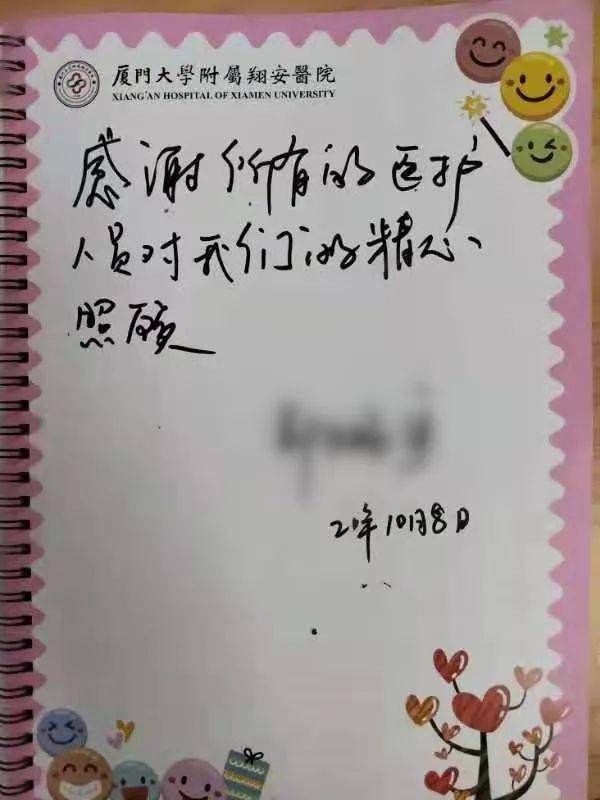 厦門大學附屬翔安醫院
XIANG'AN HOSPITAL OF XIAMEN UNIVERSITY
感谢所有的医护
人员对我们的精心
照顾
21年10月8日